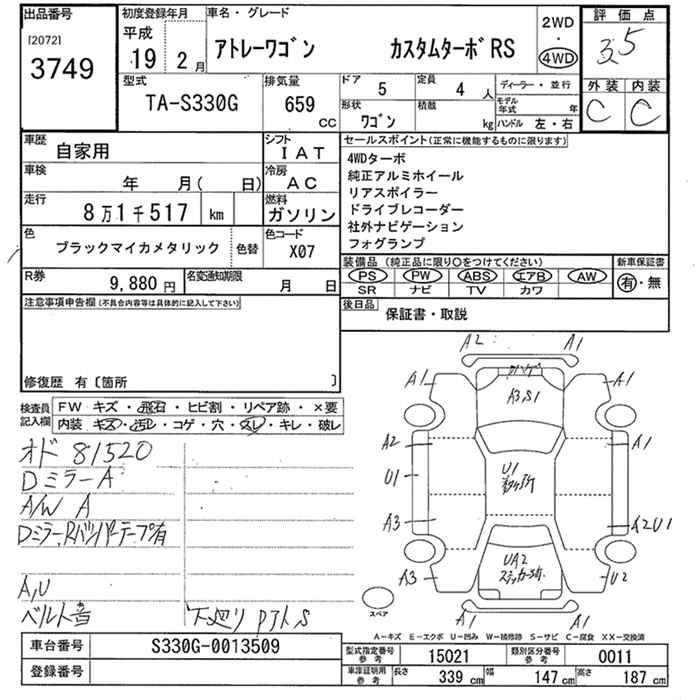 出品番号
[2072]
3749
初度登録年月
平成
19年 2月
車名・グレード
アトレーワゴン カスタムターボRS
2WD
・
4WD
評価点
3.5
外装 内装
C C
型式
TA-S330G
排気量
659 CC
ドア 5
定員 4 人
形状 ワゴン
積載 kg
ディーラー・並行
モデル年式 年
ハンドル 左・右
車歴
自家用
シフト
I A T
車検
年 月( 日)
冷房
A C
走行
8万1千517 km
燃料
ガソリン
色
ブラックマイカメタリック
色替
色コード
X07
R券
9,880 円
名変通知期限
月 日
セールスポイント(正常に機能するものに限ります)
4WDターボ
純正アルミホイール
リアスポイラー
ドライブレコーダー
社外ナビゲーション
フォグランプ
装備品 (純正品に限り○をつけてください)
PS PW ABS エアB AW
SR ナビ TV カワ
新車保証書
有・無
後日品
保証書・取説
注意事項申告欄(不具合内容等は具体的に記入して下さい)
修復歴 有〔箇所 〕
検査員記入欄
FW キズ・飛石・ヒビ割・リペア跡・×要
内装 キズ・汚レ・コゲ・穴・スレ・キレ・破レ
オド 81520
DミラーA
A/W A
Dミラー、Rバンパーテープ有
A,U
ベルト音
下廻り P外 S
A2 A1
A1 A1
A3,S1
A2 A1
U1
U1
A3 A2U1
UA2
A3 U2
A1 A1
スペア
A-キズ E-エクボ U-凹み W-補修跡 S-サビ C-腐食 XX-交換済
車台番号
S330G-0013509
登録番号
型式指定番号 参考
15021
類別区分番号 参考
0011
車庫証明用 参考
長さ 339 cm
幅 147 cm
高さ 187 cm